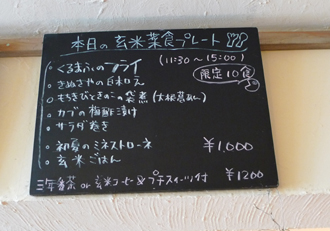 本日の玄米菜食プレート
(11:30〜15:00)
限定10食
・くるまふのフライ
・きぬさやの白和え
・もちきびときのこの袋煮(大根葱あん)
・カブの梅酢漬け
・サラダ巻き
・初夏のミネストローネ
・玄米ごはん
¥1,000
三年番茶 or 玄米コーヒー & プチスイーツ付 ¥1200